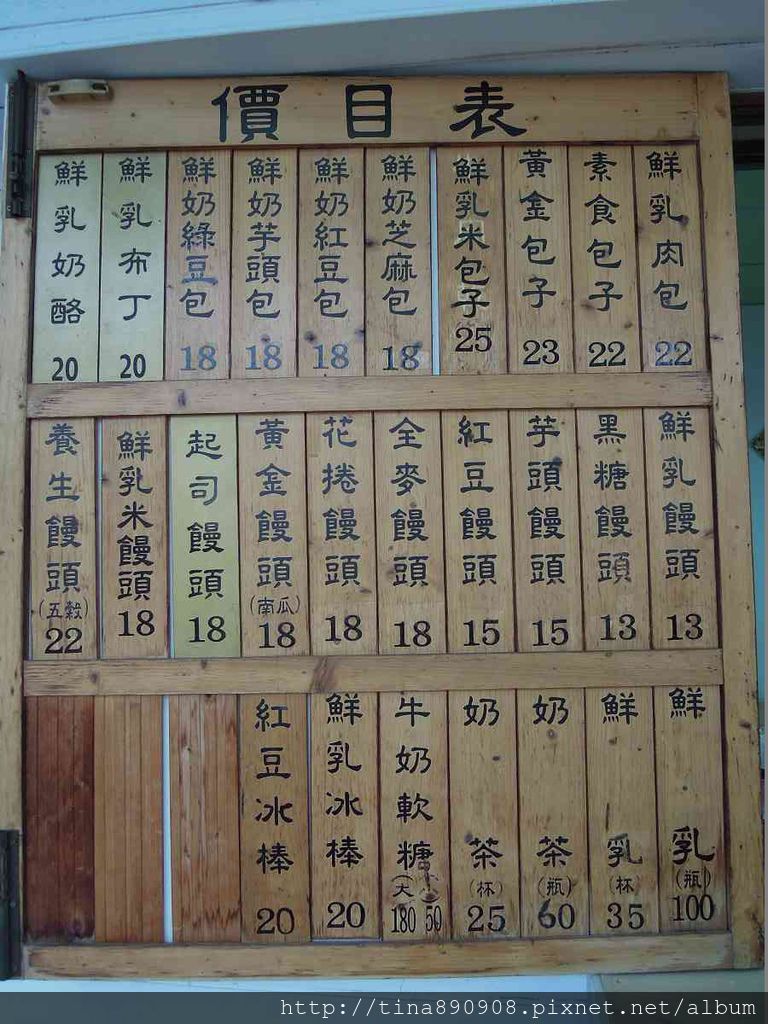 價目表
鮮乳肉包 22
素食包子 22
黃金包子 23
鮮乳米包子 25
鮮奶芝麻包 18
鮮奶紅豆包 18
鮮奶芋頭包 18
鮮奶綠豆包 18
鮮乳布丁 20
鮮乳奶酪 20
鮮乳饅頭 13
黑糖饅頭 13
芋頭饅頭 15
紅豆饅頭 15
全麥饅頭 18
花捲饅頭 18
黃金饅頭(南瓜) 18
起司饅頭 18
鮮乳米饅頭 18
養生饅頭(五穀) 22
鮮乳(瓶) 100
鮮乳(杯) 35
奶茶(瓶) 60
奶茶(杯) 25
牛奶軟糖(大)(小) 180 50
鮮乳冰棒 20
紅豆冰棒 20
http://tina890908.pixnet.net/album